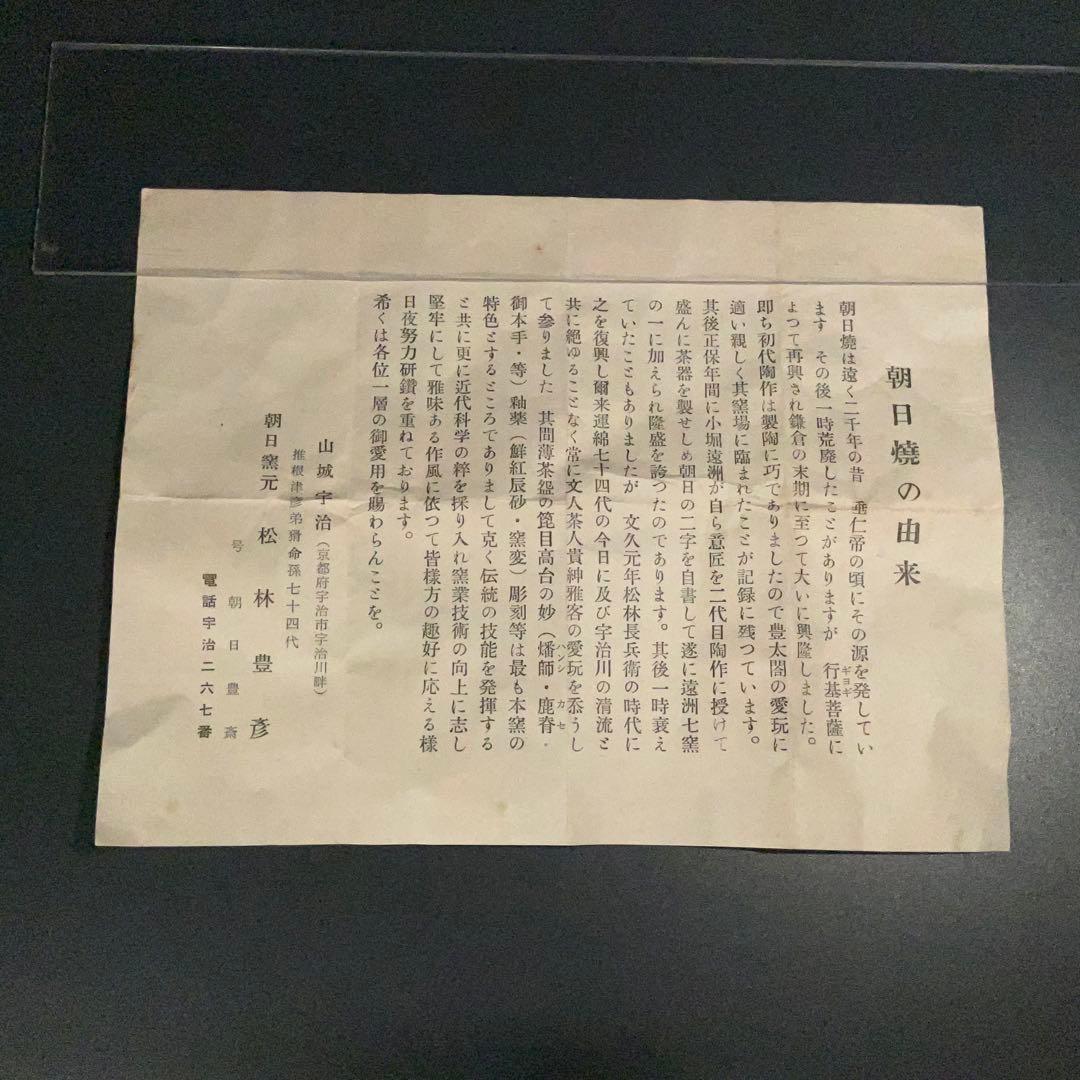 朝日燒の由来
朝日燒は遠く二千年の昔 垂仁帝の頃にその源を発してい
ます その後一時荒廃したことがありますが 行基菩薩に
ギヨギ
よつて再興され鎌倉の末期に至つて大いに興隆しました。
即ち初代陶作は製陶に巧でありましたので豊太閤の愛玩に
適い親しく其窯場に臨まれたことが記録に残つています。
其後正保年間に小堀遠洲が自ら意匠を二代目陶作に授けて
盛んに茶器を製せしめ朝日の二字を自書して遂に遠洲七窯
の一に加えられ隆盛を誇つたのであります。其後一時衰え
ていたこともありましたが 文久元年松林長兵衛の時代に
之を復興し爾来連綿七十四代の今日に及び宇治川の清流と
共に絶ゆることなく常に文人茶人貴紳雅客の愛玩を忝うし
て参りました 其間薄茶盌の箆目高台の妙（燔師・鹿脊・
ハンシ カセ
御本手・等）釉薬（鮮紅辰砂・窯変）彫刻等は最も本窯の
特色とするところでありまして克く伝統の技能を発揮する
と共に更に近代科学の粋を採り入れ窯業技術の向上に志し
堅牢にして雅味ある作風に依つて皆様方の趣好に応える様
日夜努力研鑽を重ねております。
希くは各位一層の御愛用を賜わらんことを。
山城宇治（京都府宇治市宇治川畔）
推根津彦弟猾命孫七十四代
朝日窯元 松林豊彦
号 朝日豊斎
電話宇治二六七番